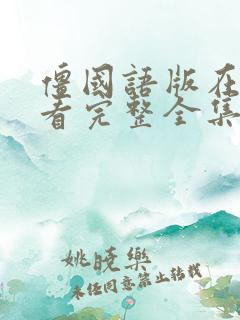 僵國語版在
看完整全集
姚曉樂
未经同意禁止转载